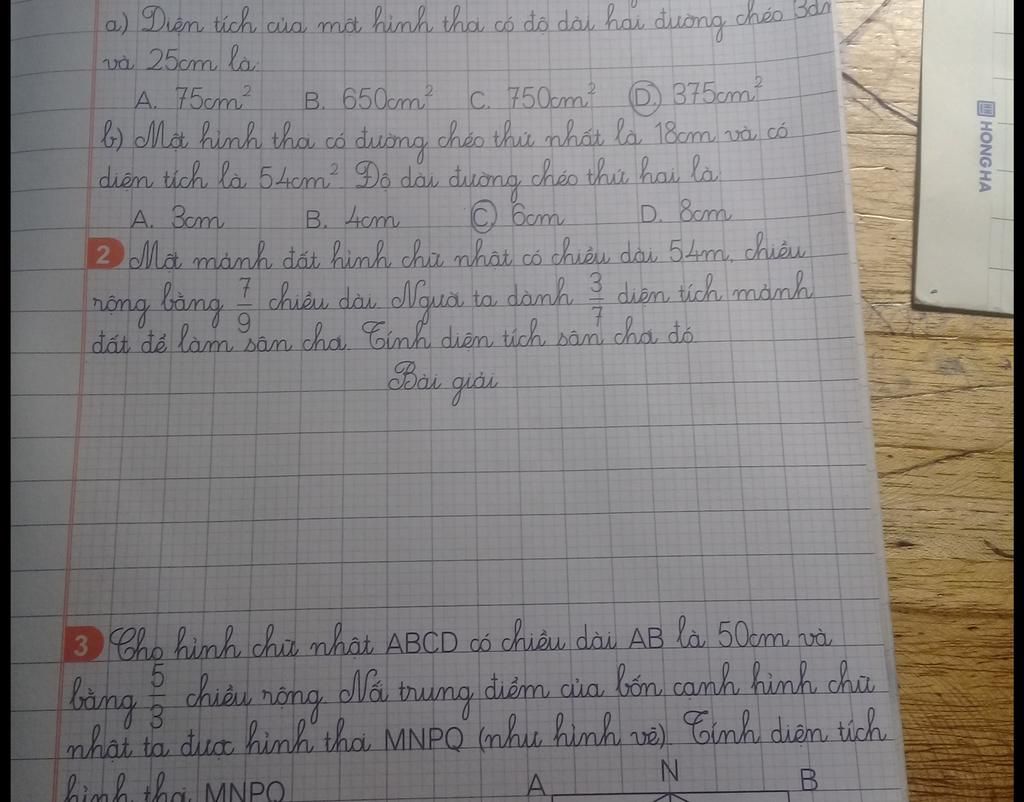 a) Diện tích của một hình thoi có độ dài hai đường chéo 3dm
và 25cm là:
A. 75cm² B. 650cm² C. 750cm² D. 375cm²
b) Một hình thoi có đường chéo thứ nhất là 18cm và có
diện tích là 54cm². Độ dài đường chéo thứ hai là:
A. 3cm B. 4cm C. 6cm D. 8cm
2 Một mảnh đất hình chữ nhật có chiều dài 54m, chiều
rộng bằng 7/9 chiều dài. Người ta dành 3/7 diện tích mảnh
đất để làm sân chơi. Tính diện tích sân chơi đó.
Bài giải
3 Cho hình chữ nhật ABCD có chiều dài AB là 50cm và
bằng 5/3 chiều rộng. Nối trung điểm của bốn cạnh hình chữ
nhật ta được hình thoi MNPQ (như hình vẽ). Tính diện tích
hình thoi MNPQ.
A N B
HONG HA